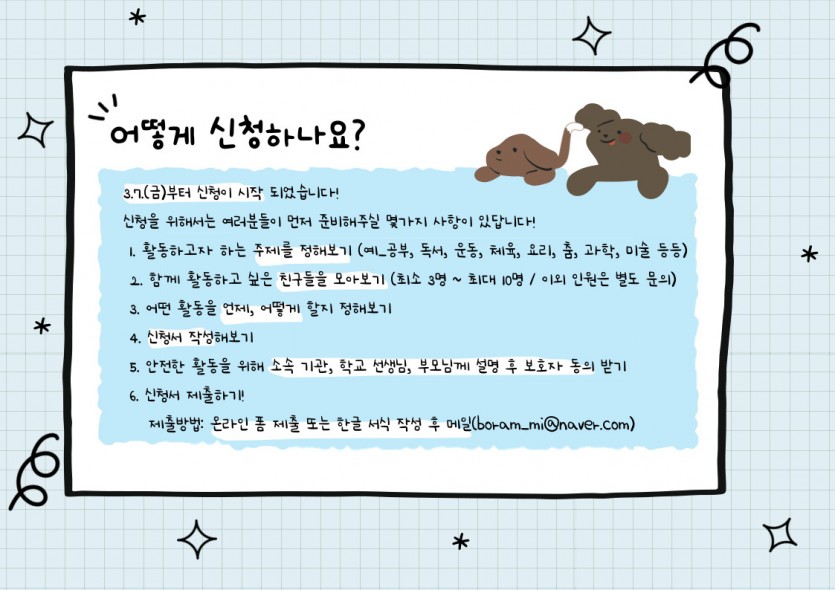 어떻게 신청하나요?
3.7.(금)부터 신청이 시작 되었습니다!
신청을 위해서는 여러분들이 먼저 준비해주실 몇가지 사항이 있답니다!
1. 활동하고자 하는 주제를 정해보기 (예_공부, 독서, 운동, 체육, 요리, 춤, 과학, 미술 등등)
2. 함께 활동하고 싶은 친구들을 모아보기 (최소 3명 ~ 최대 10명 / 이외 인원은 별도 문의)
3. 어떤 활동을 언제, 어떻게 할지 정해보기
4. 신청서 작성해보기
5. 안전한 활동을 위해 소속 기관, 학교 선생님, 부모님께 설명 후 보호자 동의 받기
6. 신청서 제출하기!
제출방법: 온라인 폼 제출 또는 한글 서식 작성 후 메일(boram_mi@naver.com)